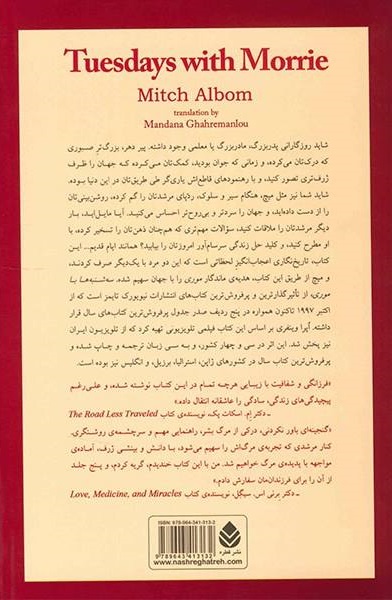 Tuesdays with Morrie
Mitch Albom
translation by
Mandana Ghahremanlou
شاید روزگارانی پدربزرگ، مادربزرگ یا معلمی وجود داشته. پیر دهر، بزرگ‌تر صبوری
که درک‌تان می‌کرده، و زمانی که جوان بودید، کمک‌تان می‌کرده که جهان را ظرف
ژرف‌تری تصور کنید، و با رهنمودهای قاطع‌اش یاری‌گر طی طریق‌تان در این دنیا بوده.
شاید شما نیز مثل میچ، هنگام سیر و سلوک، ردپای مرشدتان را گم کرده، روشن‌بینی‌تان
را از دست داده‌اید، و جهان را سردتر و بی‌روح‌تر احساس می‌کنید. آیا مایل‌اید، بار
دیگر مرشدتان را ملاقات کنید، سؤالات مهم‌تری که هم‌چنان ذهن‌تان را تسخیر کرده، با
او مطرح کنید، و کلید حل زندگی سرسام‌آور امروزتان را بیابید؟ همانند ایام قدیم... این
کتاب، تاریخ‌نگاری اعجاب‌انگیز لحظاتی است که این دو مرد با یک‌دیگر صرف کردند،
و میچ از طریق این کتاب، هدیه‌ی ماندگار موری را با جهان سهیم شده. سه‌شنبه‌ها با
موری، از تأثیرگذارترین و پرفروش‌ترین کتاب‌های انتشارات نیویورک تایمز است که از
اکتبر ۱۹۹۷ تاکنون همواره در پنج ردیف صدر جدول پرفروش‌ترین کتاب‌های سال قرار
داشته. اُپرا وینفری بر اساس این کتاب فیلمی تلویزیونی تهیه کرد که از تلویزیون ایران
نیز پخش شد. این اثر در سی و چهار کشور، و به سی زبان ترجمه و چاپ شده و
پرفروش‌ترین کتاب سال در کشورهای ژاپن، استرالیا، برزیل، و انگلیس نیز بوده است.
«فرزانگی و شفافیت با زیبایی هرچه تمام در این کتاب نوشته شده، و علی‌رغم
پیچیدگی‌های زندگی، سادگی را عاشقانه انتقال داده.»
– دکتر اِم. اسکات پک، نویسنده‌ی کتاب The Road Less Traveled
«گنجینه‌ای باور نکردنی. درکی از مرگ بشر، راهنمایی مهم و سرچشمه‌ی روشنگری.
کنار مرشدی که تجربه‌ی مرگ‌اش را سهیم می‌شود، با دانش و بینشی ژرف، آماده‌ی
مواجهه با پدیده‌ی مرگ خواهیم شد. من با این کتاب خندیدم، گریه کردم، و پنج جلد
از آن را برای فرزندان‌مان سفارش دادم.»
– دکتر برنی اس. سیگل، نویسنده‌ی کتاب Love, Medicine, and Miracles
ISBN: 978-964-341-313-2
9 789643 413132
نشر قطره
www.nashreghatreh.com